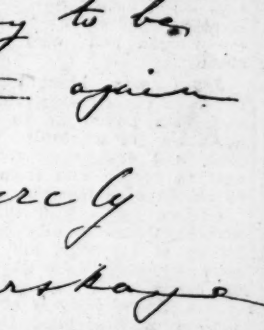 y to be
again
erely
rskaya